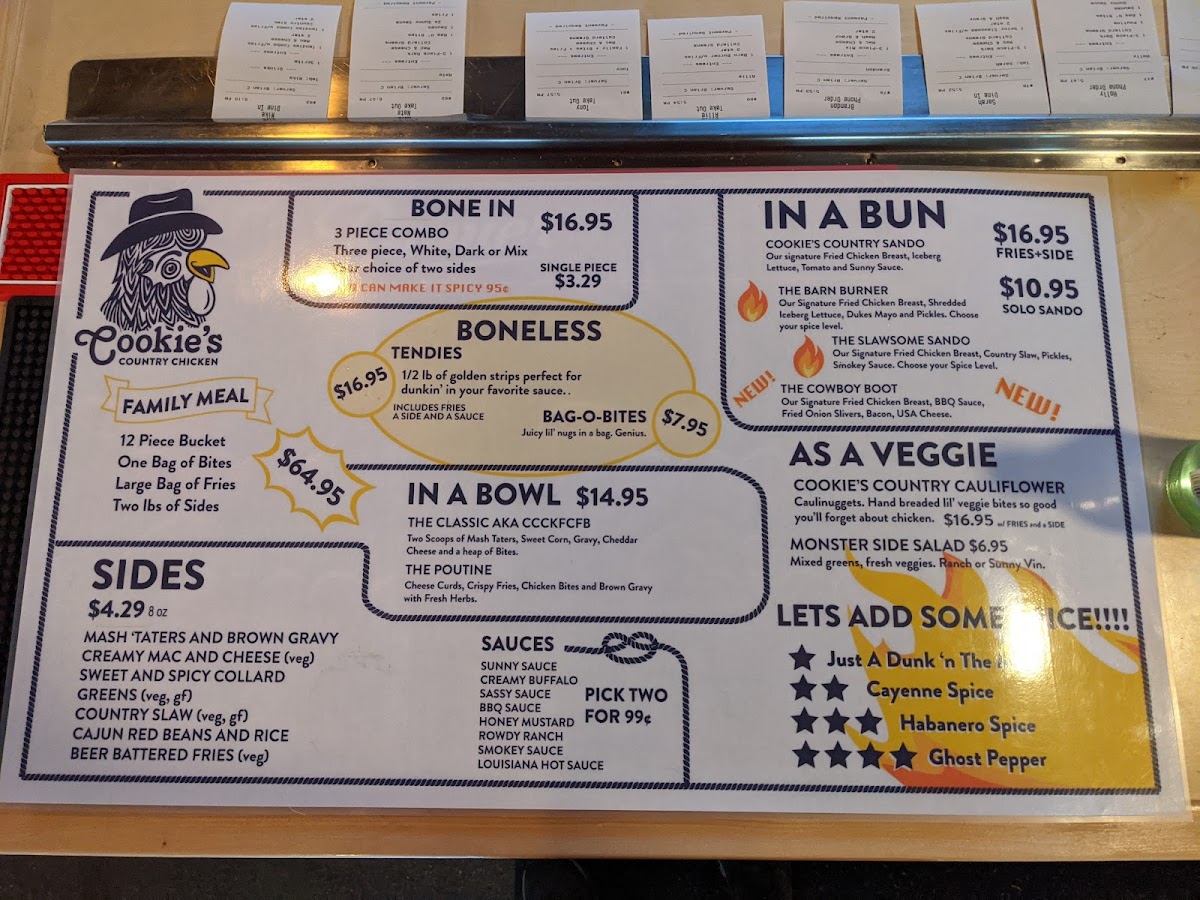 Cookie's
COUNTRY CHICKEN
FAMILY MEAL
12 Piece Bucket
One Bag of Bites
Large Bag of Fries
Two lbs of Sides
$64.95
BONE IN
$16.95
3 PIECE COMBO
Three piece, White, Dark or Mix
choice of two sides
CAN MAKE IT SPICY 95¢
SINGLE PIECE
$3.29
BONELESS
TENDIES
$16.95
1/2 lb of golden strips perfect for
dunkin' in your favorite sauce..
INCLUDES FRIES
A SIDE AND A SAUCE
BAG-O-BITES
Juicy lil' nugs in a bag. Genius.
$7.95
IN A BOWL $14.95
THE CLASSIC AKA CCCKFCFB
Two Scoops of Mash Taters, Sweet Corn, Gravy, Cheddar
Cheese and a heap of Bites.
THE POUTINE
Cheese Curds, Crispy Fries, Chicken Bites and Brown Gravy
with Fresh Herbs.
SIDES
$4.29 8 oz
MASH 'TATERS AND BROWN GRAVY
CREAMY MAC AND CHEESE (veg)
SWEET AND SPICY COLLARD
GREENS (veg, gf)
COUNTRY SLAW (veg, gf)
CAJUN RED BEANS AND RICE
BEER BATTERED FRIES (veg)
SAUCES
SUNNY SAUCE
CREAMY BUFFALO
SASSY SAUCE
BBQ SAUCE
HONEY MUSTARD
ROWDY RANCH
SMOKEY SAUCE
LOUISIANA HOT SAUCE
PICK TWO
FOR 99¢
IN A BUN
$16.95
FRIES+SIDE
$10.95
SOLO SANDO
COOKIE'S COUNTRY SANDO
Our signature Fried Chicken Breast, Iceberg
Lettuce, Tomato and Sunny Sauce.
THE BARN BURNER
Our Signature Fried Chicken Breast, Shredded
Iceberg Lettuce, Dukes Mayo and Pickles. Choose
your spice level.
THE SLAWSOME SANDO
Our Signature Fried Chicken Breast, Country Slaw, Pickles,
Smokey Sauce. Choose your Spice Level.
NEW!
THE COWBOY BOOT
Our Signature Fried Chicken Breast, BBQ Sauce,
Fried Onion Slivers, Bacon, USA Cheese.
NEW!
AS A VEGGIE
COOKIE'S COUNTRY CAULIFLOWER
Caulinuggets. Hand breaded lil' veggie bites so good
you'll forget about chicken. $16.95 w/ FRIES and a SIDE
MONSTER SIDE SALAD $6.95
Mixed greens, fresh veggies. Ranch or Sunny Vin.
LETS ADD SOME ICE!!!!
Just A Dunk 'n The
Cayenne Spice
Habanero Spice
Ghost Pepper